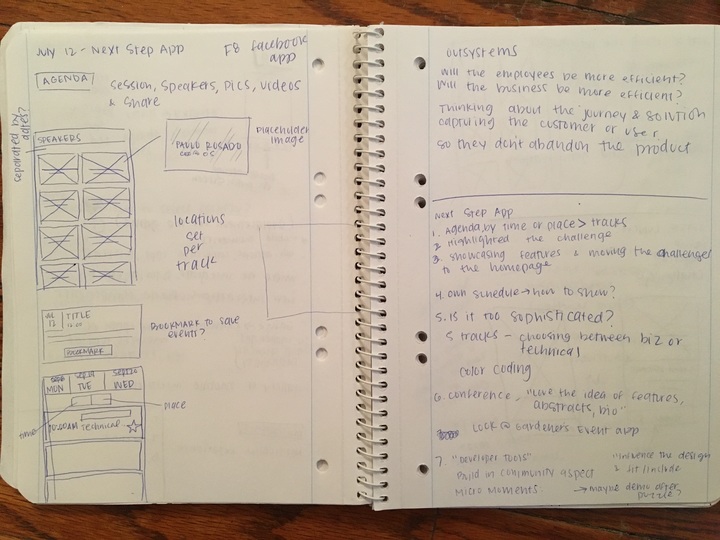 July 12 - Next Step App
F8 facebook app
AGENDA
Session, speakers, pics, videos
& share
separated by
dates?
SPEAKERS
PAULO ROSADO
placeholder
image
locations
set
per
track
JUL
12
TITLE
BOOKMARK
BOOKMARK to save
events?
MON
TUE
WED
time
place
10:00AM Technical
outsystems
will the employees be more efficient?
will the business be more efficient?
Thinking about the journey & solution
capturing the customer or user
so they don't abandon the product
Next Step App
1. Agenda, by time or place > tracks
2. highlighted the challenge
3. showcasing features & moving the challenges
to the homepage
4. own schedule → how to show?
5. is it too sophisticated?
5 tracks - choosing between biz or
technical
color coding
6. conference, "love the idea of features,
abstracts, bio"
Look @ Gardener's Event app
7. "Developer tools"
Build in community aspect
Micro Moments
& sit/include
→ maybe demo after
puzzle?